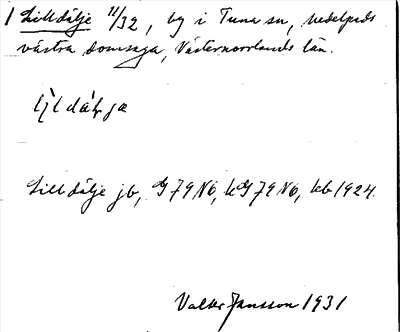 1 Lilldälje 11/32, by i Tuna sn, Medelpads
västra domsaga, Västernorrlands län.
Lilldälje jb, G 79 N6, kG 79 N6, kb 1924.
Valter Jansson 1931